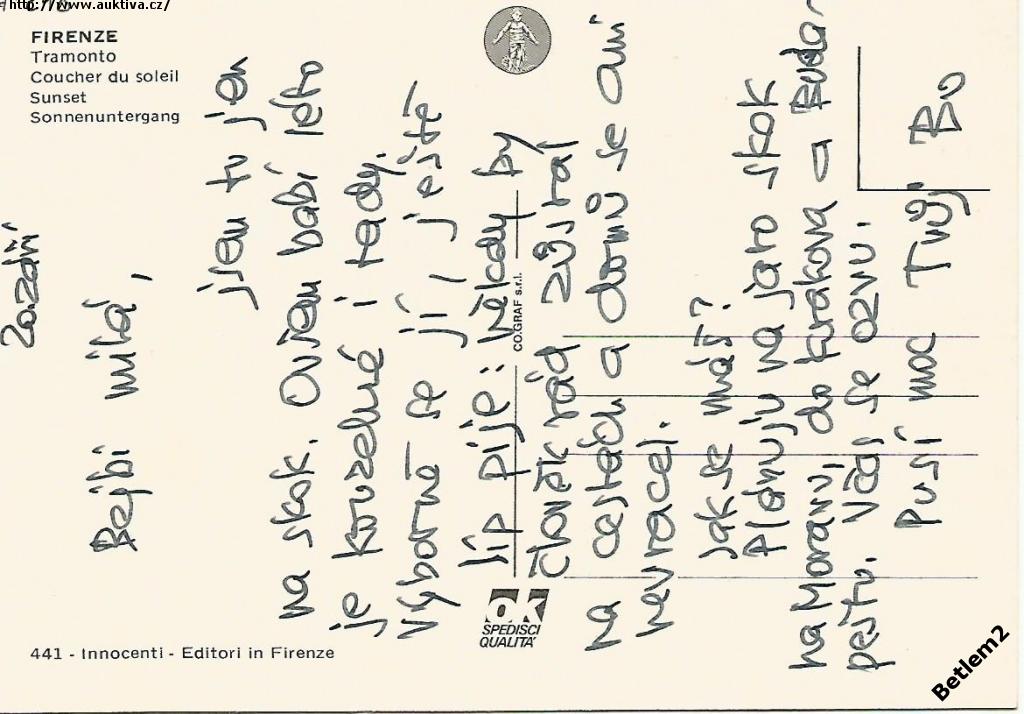 http://www.auktiva.cz/
FIRENZE
Tramonto
Coucher du soleil
Sunset
Sonnenuntergang
20. září
Bejbi milá,
jsem tu jen
na skok. Ovšem babí léto
je kouzelné i tady.
Výborně se jí, i ještě
líp pije: někdy by
člověk rád zůstal
na cestách a domů se ani
nevracel.
Jak se máš?
Plánuju na jaro skok
na Moravu, do Krakova a Buda-
pešti. Včas se ozvu.
Pusí moc Tvůj Bo
CO.GRAF s.r.l.
ok
SPEDISCI
QUALITA'
441 - Innocenti - Editori in Firenze
Betlem2